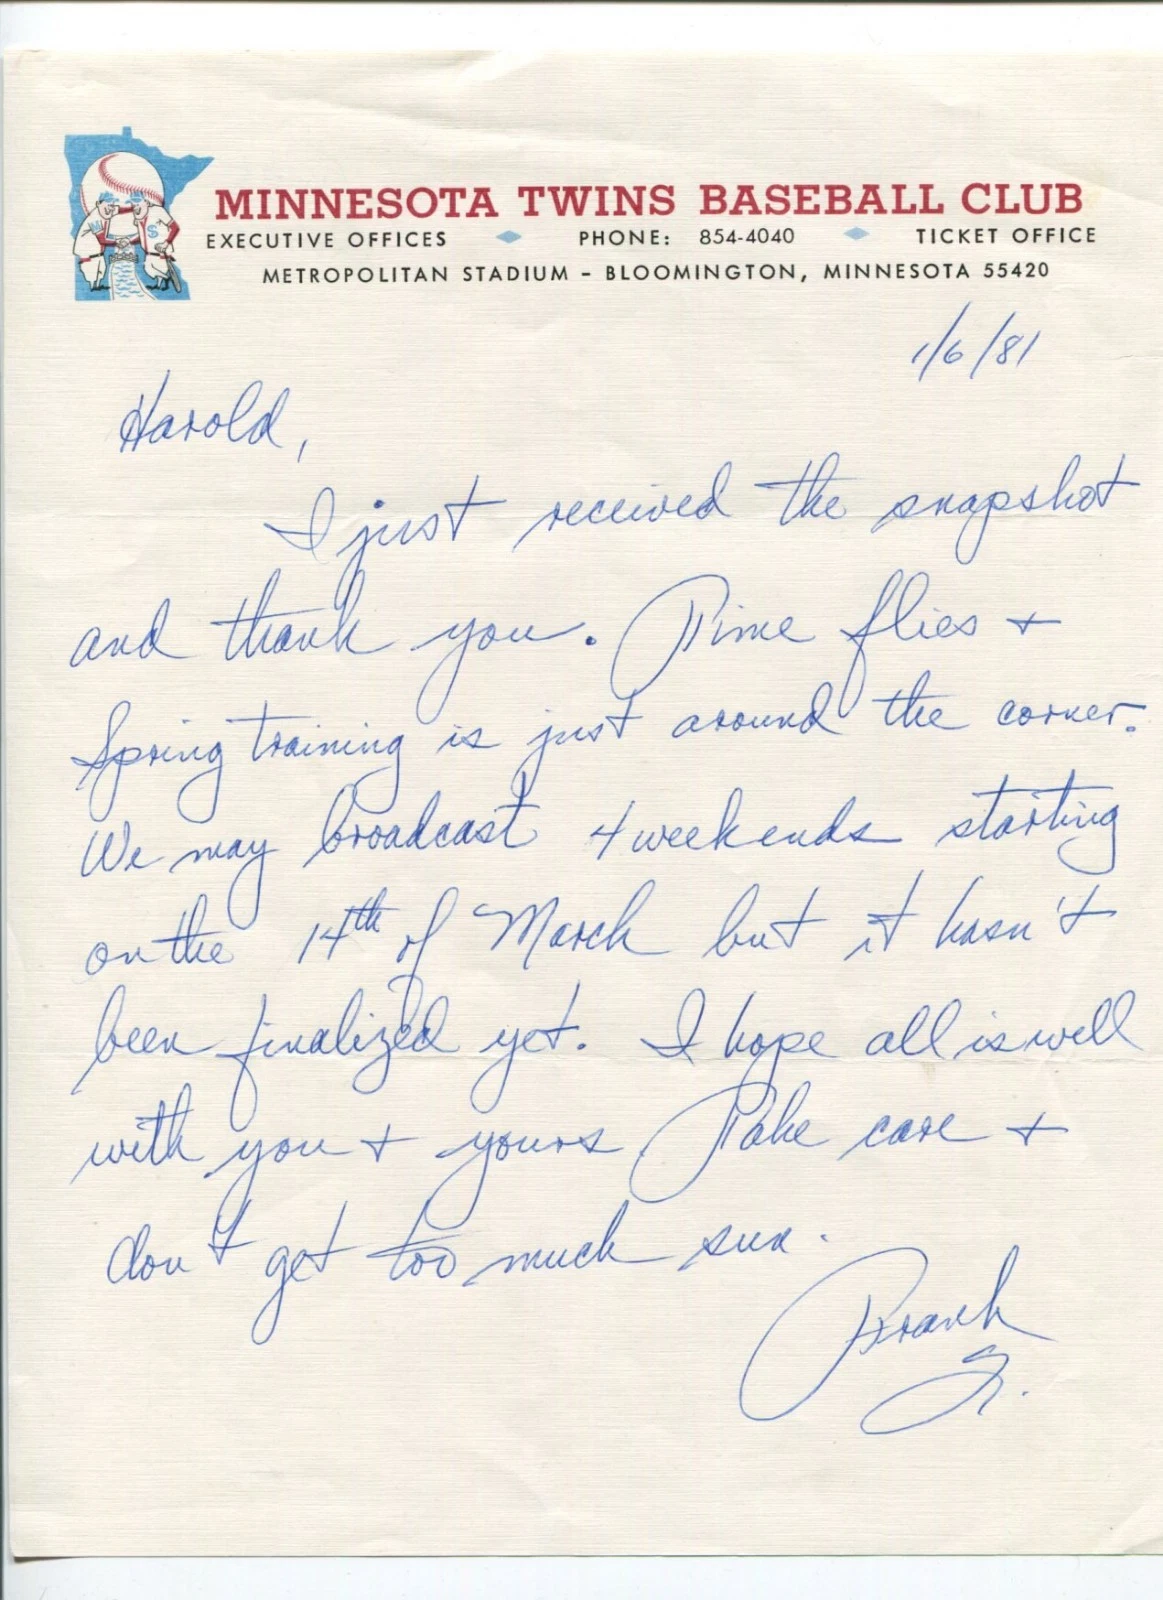 MINNESOTA TWINS BASEBALL CLUB
EXECUTIVE OFFICES PHONE: 854-4040 TICKET OFFICE
METROPOLITAN STADIUM - BLOOMINGTON, MINNESOTA 55420
1/6/81
Harold,
I just received the snapshot
and thank you. Time flies +
Spring training is just around the corner.
We may broadcast 4 weekends starting
on the 14th of March but it hasn't
been finalized yet. I hope all is well
with you + yours Take care +
don't get too much sun.
Frank
Q.